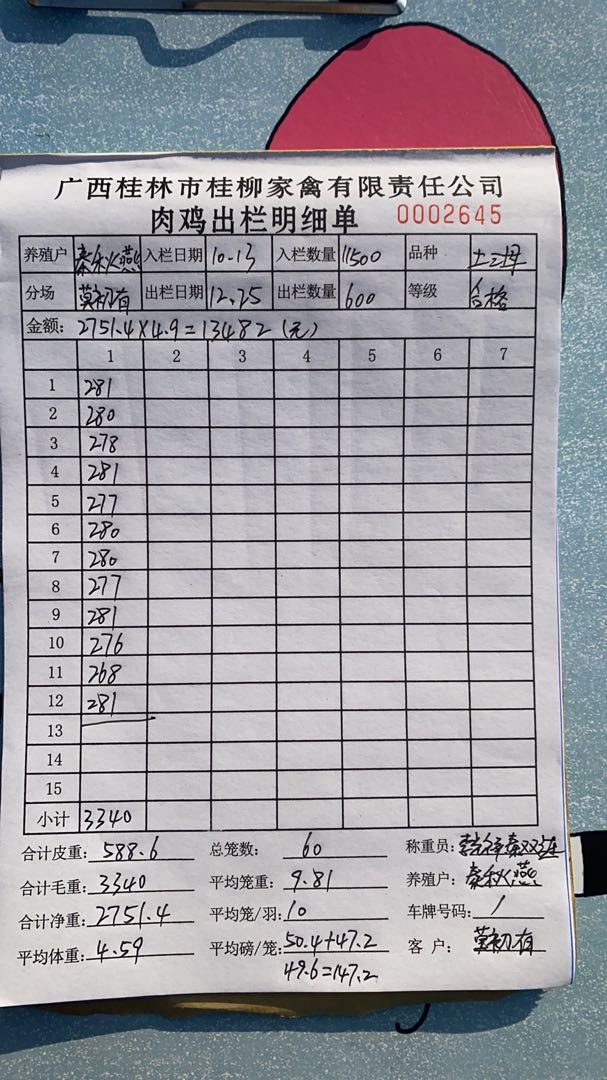 广西桂林市桂柳家禽有限责任公司
肉鸡出栏明细单 0002645
养殖户 秦秋燕 入栏日期 10-13 入栏数量 11500 品种 土2号
分场 莫初有 出栏日期 12.25 出栏数量 600 等级 合格
金额: 2751.4×4.9=13482(元)
1 2 3 4 5 6 7
1 281
2 280
3 278
4 281
5 277
6 280
7 280
8 277
9 281
10 276
11 268
12 281
13
14
15
小计 3340
合计皮重: 588.6 总笼数: 60 称重员:
合计毛重: 3340 平均笼重: 9.81 养殖户: 秦秋燕
合计净重: 2751.4 平均笼/羽: 10 车牌号码: /
平均体重: 4.59 平均磅/笼: 50.4+47.2 客 户: 莫初有
49.6=147.2